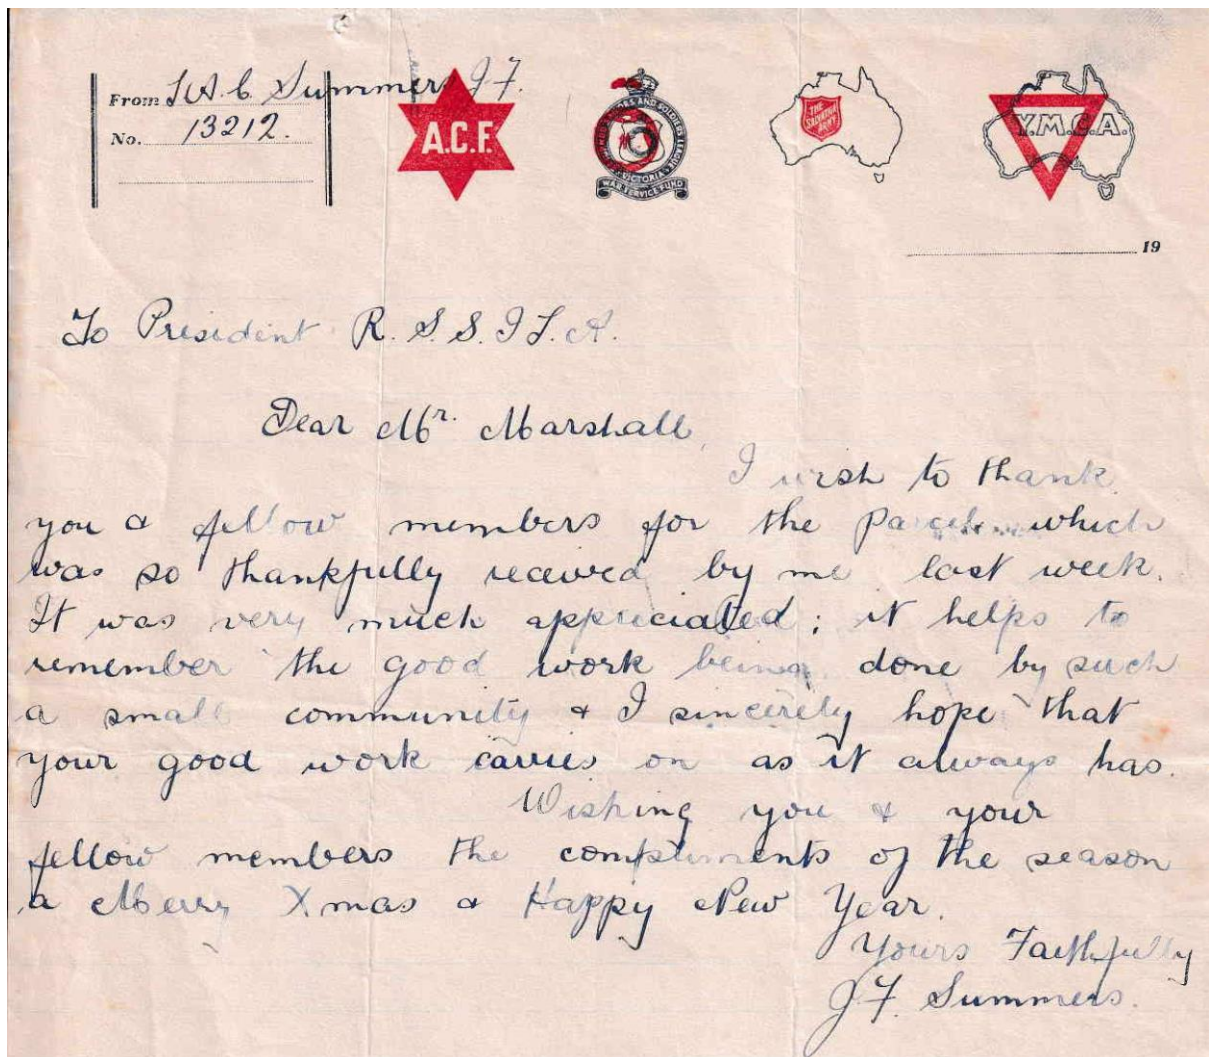 From L.A.C. Summers J.F.
No. 13212.
A.C.F.
SAILORS AND SOLDIERS LEAGUE
VICTORIA
WAR SERVICE FUND
THE SALVATION ARMY
Y.M.C.A.
19
To President R.S.S.I.L.A.
Dear Mr. Marshall,
I wish to thank
you & fellow members for the parcel which
was so thankfully received by me last week.
It was very much appreciated; it helps to
remember the good work being done by such
a small community & I sincerely hope that
your good work carries on as it always has.
Wishing you & your
fellow members the compliments of the season
a Merry Xmas & Happy New Year.
Yours Faithfully
J.F. Summers.